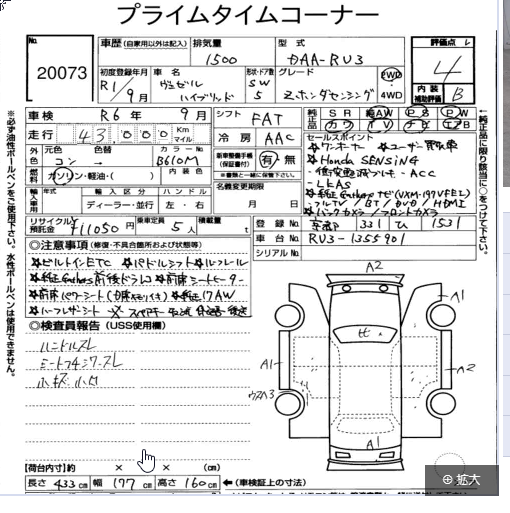 プライムタイムコーナー
No. 20073
車歴 (自家用以外は記入) 排気量 1500 型式 DAA-RU3
初度登録年月 R1/9月 車名 ヴェゼル ハイブリッド 形状・ドア数 SW 5 グレード Z・ホンダセンシング FWD 4WD
評価点 4
内装補助評価 B
車検 R6年 9月 シフト FAT
走行 43,000 Km マイル 冷房 AAC
純正品 SR AW PS PW
カワ TV ナビ エアB
外色 元色 コン 色替 カラーNo B610M
燃料 ガソリン・軽油・( ) 内装色
新車整備手帳 (保証書付) 有・無
※書類と一緒に保管して下さい。
名義変更期限 月 日
輸入車 年式 輸入区分 ハンドル
ディーラー・並行 左・右
リサイクル預託金 ¥11050 乗車定員 5人 積載量 t
セールスポイント
☆ワンオーナー ☆ユーザー買取車
☆Honda SENSING
・ACC
・LKAS
・フルTV / BT / DVD / HDMI
☆バックカメラ / フロントカメラ
登録No 京都 331 ひ 1531
車台No RU3-1355901
シリアルNo
◎注意事項 (修復・不具合箇所および状態等)
☆ビルトインETC ☆パドルシフト ☆ルーフレール
☆純正Gathers前後ドラレコ ☆前席シートヒーター
☆純正17AW
☆ハーフレザーシート
◎検査員報告 (USS使用欄)
ハンドルスレ
シートフチシワ・スレ
小キズ 小凹
【荷台内寸】約 × × (cm)
長さ 433cm 幅 177cm 高さ 160cm ←(車検証上の寸法)
A2
A1
ヒ
A1
A2
A1
※必ず油性ボールペンをご使用下さい。水性ボールペンは使用できません。
↓純正品に限り該当に○をつけて下さい。
拡大